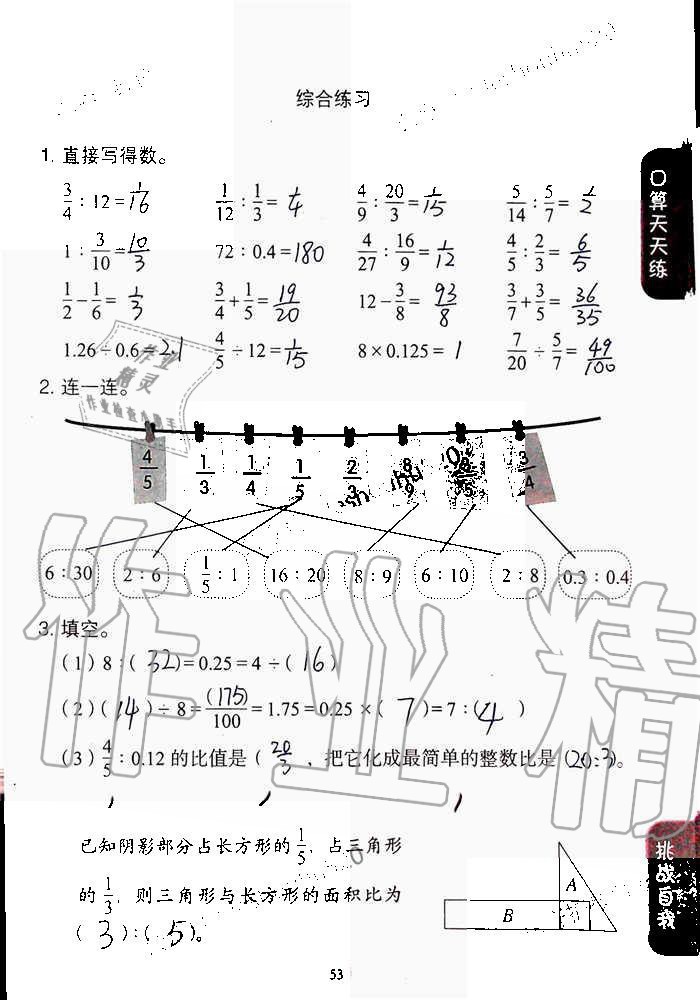 综合练习
1. 直接写得数。
3/4 : 12 = 1/16  1/12 : 1/3 = 1/4  4/9 : 20/3 = 1/15  5/14 : 5/7 = 1/2
1 : 3/10 = 10/3  72 : 0.4 = 180  4/27 : 16/9 = 1/12  4/5 : 2/3 = 6/5
1/2 - 1/6 = 1/3  3/4 + 1/5 = 19/20  12 - 3/8 = 93/8  3/7 + 3/5 = 36/35
1.26 ÷ 0.6 = 2.1  4/5 ÷ 12 = 1/15  8 × 0.125 = 1  7/20 ÷ 5/7 = 49/100
2. 连一连。
4/5  1/3  1/4  1/5  2/3  8/9  3/4
6 : 30  2 : 6  1/5 : 1  16 : 20  8 : 9  6 : 10  2 : 8  0.3 : 0.4
3. 填空。
(1) 8 : ( 32 ) = 0.25 = 4 ÷ ( 16 )
(2) ( 14 ) ÷ 8 = (175)/100 = 1.75 = 0.25 × ( 7 ) = 7 : ( 4 )
(3) 4/5 : 0.12 的比值是 ( 20/3 , 把它化成最简单的整数比是 (20:3)。
已知阴影部分占长方形的 1/5, 占三角形
的 1/3, 则三角形与长方形的面积比为
( 3 ) : ( 5 )。
A
B
53
口算天天练
挑战自我
作业精灵
作业检查小助手
作业精